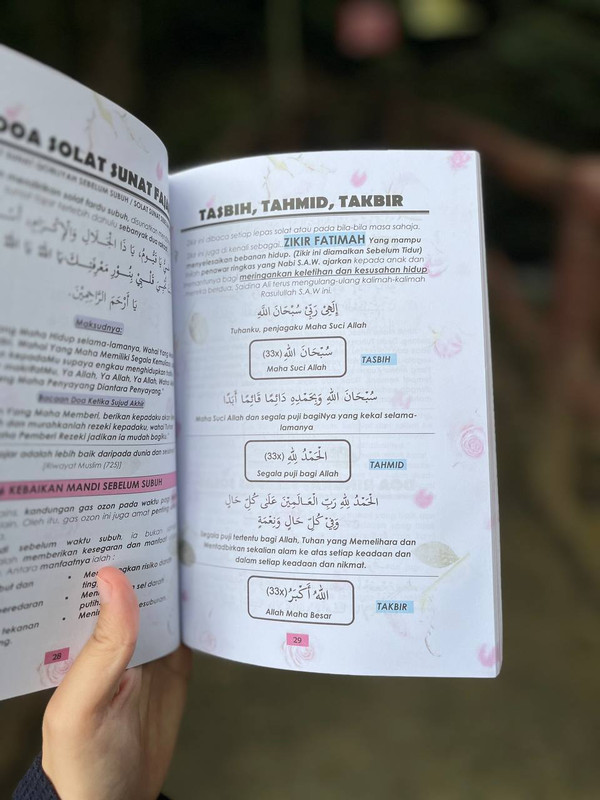 DOA SOLAT SUNAT
SEBELUM SUBUH / SOLAT SUNAT
solat fardu subuh, disunatkan
terlebih dahulu sebanyak dua
يَا أَرْحَمَ الرَّاحِمِيْنَ
Maksudnya:
Maha hidup selama-lamanya, Wahai Yang
Wahai Yang Maha Memiliki Segala
supaya engkau menghidupkan
Ya Allah, Ya Allah, Ya Allah,
Maha Penyayang Diantara Penyayang."
Bacaan Doa Ketika Sujud Akhir
Yang Maha Memberi, berikan kepadaku
dan murahkanlah rezeki kepadaku,
Pemberi Rezeki jadikan ia mudah bagiku."
adalah lebih baik daripada dunia dan
[Riwayat Muslim (725)]
KEBAIKAN MANDI SEBELUM SUBUH
kandungan gas ozon pada waktu
Oleh itu, gas ozon ini juga amat penting
sebelum waktu subuh, ia bukan
memberikan kesegaran dan manfaat
Antara manfaatnya ialah :
risiko
sel darah
tekanan
28
TASBIH, TAHMID, TAKBIR
Zikir ini dibaca setiap lepas solat atau pada bila-bila masa sahaja.
Zikir ini juga di kenali sebagai ZIKIR FATIMAH Yang mampu
menyelesaikan bebanan hidup. (Zikir ini diamalkan Sebelum Tidur)
penawar ringkas yang Nabi S.A.W. ajarkan kepada anak dan
menantunya bagi meringankan keletihan dan kesusahan hidup
mereka berdua. Saidina Ali terus mengulang-ulang kalimah-kalimah
Rasulullah S.A.W ini.
إِلَهِيْ رَبِّيْ سُبْحَانَ اللَّهِ
Tuhanku, penjagaku Maha Suci Allah
سُبْحَانَ اللَّهِ (33x)
Maha Suci Allah
TASBIH
سُبْحَانَ اللَّهِ وَبِحَمْدِهِ دَائِمًا قَائِمًا أَبَدًا
Maha Suci Allah dan segala puji bagiNya yang kekal selama-
lamanya
الْحَمْدُ لِلَّهِ (33x)
Segala puji bagi Allah
TAHMID
الْحَمْدُ لِلَّهِ رَبِّ الْعَالَمِيْنَ عَلَى كُلِّ حَالٍ
وَفِيْ كُلِّ حَالٍ وَنِعْمَةٍ
Segala puji tertentu bagi Allah, Tuhan yang Memelihara dan
Mentadbirkan sekalian alam ke atas setiap keadaan dan
dalam setiap keadaan dan nikmat.
اللَّهُ أَكْبَرُ (33x)
Allah Maha Besar
TAKBIR
29